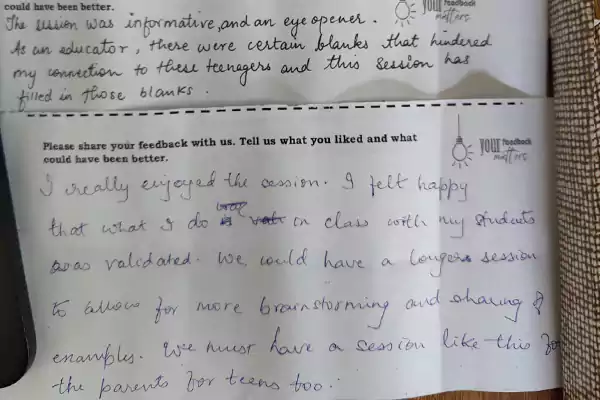 could have been better.
your feedback
matters
The session was informative, and an eye opener.
As an educator, there were certain blanks that hindered
my connection to these teenagers and this session has
filled in those blanks.
Please share your feedback with us. Tell us what you liked and what
could have been better.
your feedback
matters
I really enjoyed the session. I felt happy
that what I do in class with my students
was validated. We could have a longer session
to allow for more brainstorming and sharing of
examples. We must have a session like this for
the parents for teens too.